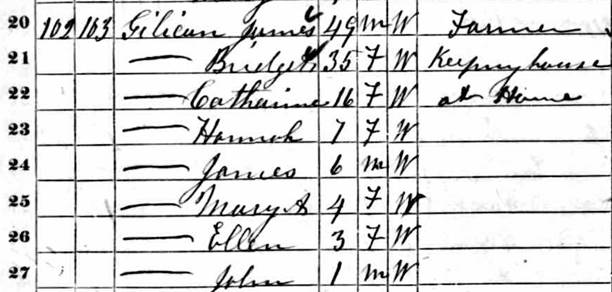 20 102 163 Gilican James 49 M W Farmer
21 — Bridget 35 F W Keeping house
22 — Catharine 16 F W at Home
23 — Hannah 7 F W
24 — James 6 M W
25 — Mary A 4 F W
26 — Ellen 3 F W
27 — John 1 M W